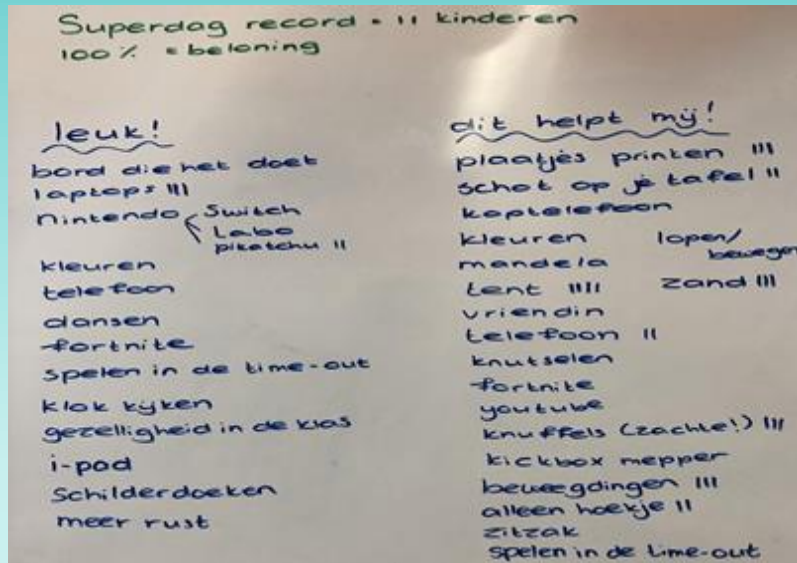 Superdag record = 11 kinderen
100% = beloning
leuk!
bord die het doet
laptops III
Nintendo Switch
Labo
pikatchu II
kleuren
telefoon
dansen
fortnite
spelen in de time-out
klok kijken
gezelligheid in de klas
i-pad
Schilderdoeken
meer rust
dit helpt mij!
plaatjes printen III
schot op je tafel II
koptelefoon
kleuren lopen/
bewegen
mandela
tent IIIII zand III
vriendin
telefoon II
knutselen
fortnite
youtube
knuffels (zachte!) III
kickbox mepper
beweegdingen III
alleen hoekje II
zitzak
spelen in de time-out